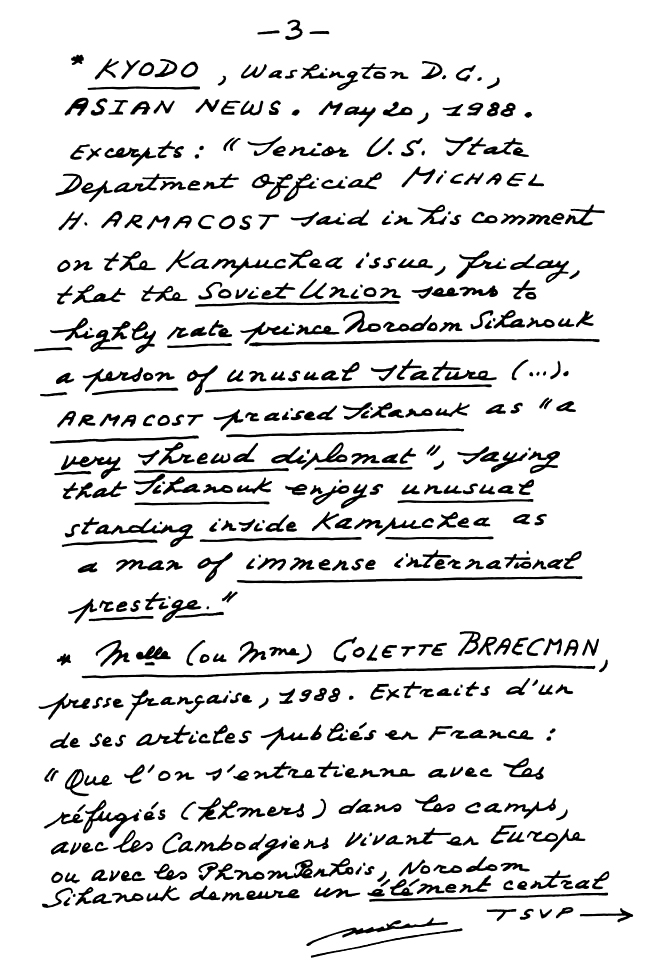 -3-
* KYODO, Washington D.C.,
ASIAN NEWS. May 20, 1988.
Excerpts : "Senior U.S. State
Department Official MICHAEL
H. ARMACOST said in his comment
on the Kampuchea issue, friday,
that the Soviet Union seems to
highly rate prince Norodom Sihanouk
a person of unusual stature (...).
ARMACOST praised Sihanouk as "a
very shrewd diplomat", saying
that Sihanouk enjoys unusual
standing inside Kampuchea as
a man of immense international
prestige."
* Melle (ou Mme) COLETTE BRAECMAN,
presse française, 1988. Extraits d'un
de ses articles publiés en France :
"Que l'on s'entretienne avec les
réfugiés (khmers) dans les camps,
avec les Cambodgiens vivant en Europe
ou avec les PhnomPenhois, Norodom
Sihanouk demeure un élément central
TSVP →